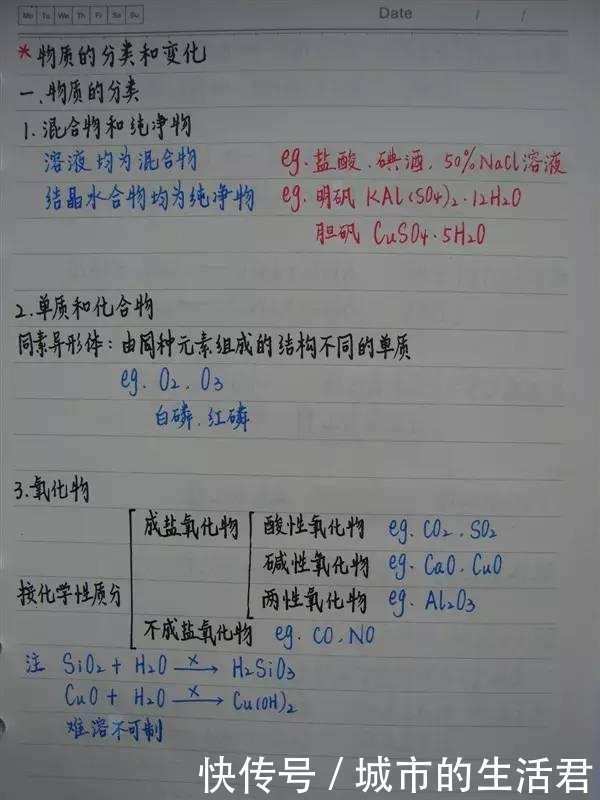 Mo Tu We Th Fr Sa Su
Date / /
*物质的分类和变化
一、物质的分类
1.混合物和纯净物
溶液均为混合物 eg.盐酸、碘酒、50%NaCl溶液
结晶水合物均为纯净物 eg.明矾 KAl(SO4)2·12H2O
胆矾 CuSO4·5H2O
2.单质和化合物
同素异形体：由同种元素组成的结构不同的单质
eg. O2、O3
白磷、红磷
3.氧化物
成盐氧化物 酸性氧化物 eg. CO2、SO2
碱性氧化物 eg. CaO、CuO
按化学性质分 两性氧化物 eg. Al2O3
不成盐氧化物 eg. CO、NO
注 SiO2 + H2O —x→ H2SiO3
CuO + H2O —x→ Cu(OH)2
难溶不可制
快传号 / 城市的生活君